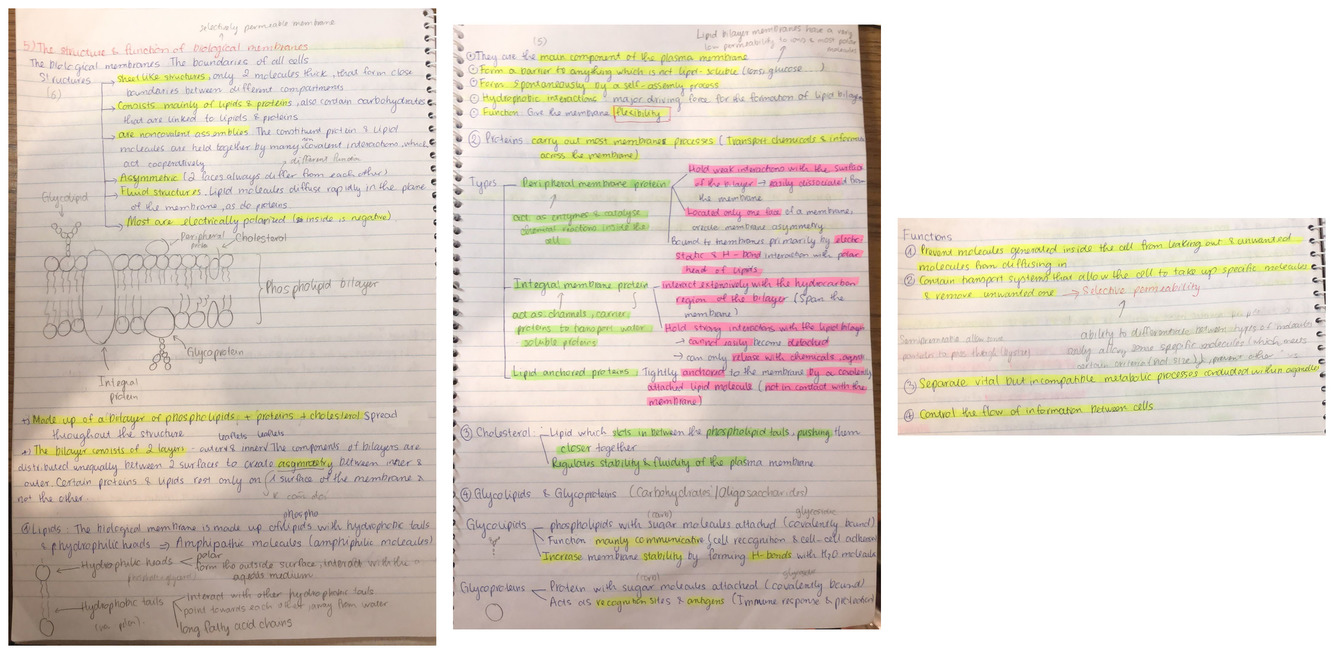 selectively permeable membrane
5) The structure & function of biological membranes
The biological membranes: The boundaries of all cells
Structures
(6)
sheet like structures, only 2 molecules thick, that form close
boundaries between different compartments
Consists mainly of lipids & proteins, also contain carbohydrates
that are linked to lipids & proteins
are noncovalent assemblies. The constituent protein & lipid
molecules are held together by many covalent interactions, which
non
act cooperatively
different function
Asymmetric (2 faces always differ from each other)
Fluid structures. Lipid molecules diffuse rapidly in the plane
of the membrane, as do proteins
Most are electrically polarized (inside is negative)
Glycolipid
Peripheral
protein
Cholesterol
Phospholipid bilayer
Glycoprotein
Integral
protein
+) Made up of a bilayer of phospholipids + proteins + cholesterol spread
throughout the structure
leaflets leaflets
+) The bilayer consists of 2 layers - outer & inner. The components of bilayers are
distributed unequally between 2 surfaces to create asymmetry between inner &
outer. Certain proteins & lipids rest only on 1 surface of the membrane &
not the other.
phospho
① Lipids: The biological membrane is made up of lipids with hydrophobic tails
& hydrophilic heads ⇒ Amphipathic molecules (amphiphilic molecules)
Hydrophilic heads
polar
form the outside surface, interact with the
aqueous medium
Hydrophobic tails
Interact with other hydrophobic tails
point towards each other, away from water
long fatty acid chains
(5)
Lipid bilayer membranes have a very
low permeability to ions & most polar
molecules
They are the main component of the plasma membrane
Form a barrier to anything which is not lipid-soluble (ions, glucose...)
Form spontaneously by a self-assembly process
Hydrophobic interactions: major driving force for the formation of lipid bilayer
Function: Give the membrane flexibility
② Proteins carry out most membrane processes (Transport chemicals & informa
across the membrane)
Types
Peripheral membrane protein
act as enzymes & catalyse
chemical reactions inside the
cell
Hold weak interactions with the surface
of the bilayer → easily dissociated from
the membrane
Located only one face of a membrane,
create membrane asymmetry
Bound to membranes primarily by electro
static & H-bond interaction with polar
head of lipids
Integral membrane protein
act as channels, carrier
proteins to transport water
soluble proteins
interact extensively with the hydrocarbon
region of the bilayer (Span the
membrane)
Hold strong interactions with the lipid bilayer
→ cannot easily become detached
→ can only release with chemicals agent
Lipid anchored proteins
Tightly anchored to the membrane by a covalently
attached lipid molecule (not in contact with the
membrane)
③ Cholesterol:
Lipid which slots in between the phospholipid tails, pushing them
closer together
Regulates stability & fluidity of the plasma membrane
④ Glycolipids & Glycoproteins (Carbohydrates/Oligosaccharides)
(carb)
Glycolipids
phospholipids with sugar molecules attached (covalently bound)
Function mainly communicative (cell recognition & cell-cell adheren
Increase membrane stability by forming H-bonds with H₂O molecule
(carb)
Glycoproteins
Protein with sugar molecules attached (covalently bound)
Acts as recognition sites & antigens (Immune response & protection)
Functions
① Prevent molecules generated inside the cell from leaking out & unwanted
molecules from diffusing in
② Contain transport systems that allow the cell to take up specific molecules
& remove unwanted one → Selective permeability
ability to differentiate between types of molecules
only allow some specific molecules (which meets
certain criteria (not size)), prevent other
③ Separate vital but incompatible metabolic processes conducted within organelles
④ Control the flow of information between cells